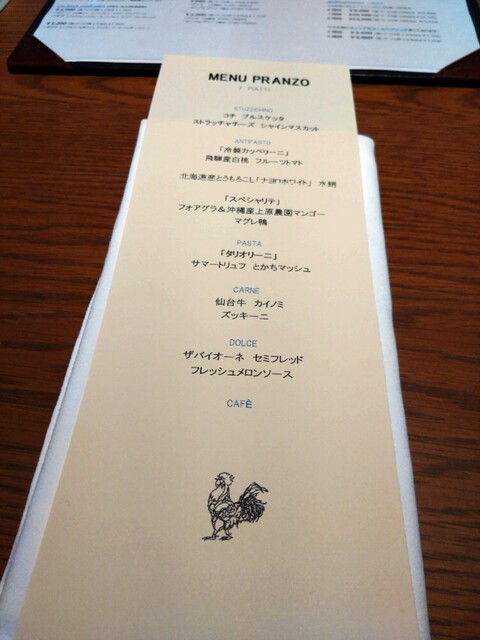 MENU PRANZO
7 PIATTI
STUZZICHINO
コチ ブルスケッタ
ストラッチャチーズ シャインマスカット
ANTIPASTO
「冷製カッペリーニ」
飛騨産白桃 フルーツトマト
北海道産とうもろこし「ナヨロホワイト」 水蛸
「スペシャリテ」
フォアグラ＆沖縄産上原農園マンゴー
マグレ鴨
PASTA
「タリオリーニ」
サマートリュフ とかちマッシュ
CARNE
仙台牛 カイノミ
ズッキーニ
DOLCE
ザバイオーネ セミフレッド
フレッシュメロンソース
CAFÈ